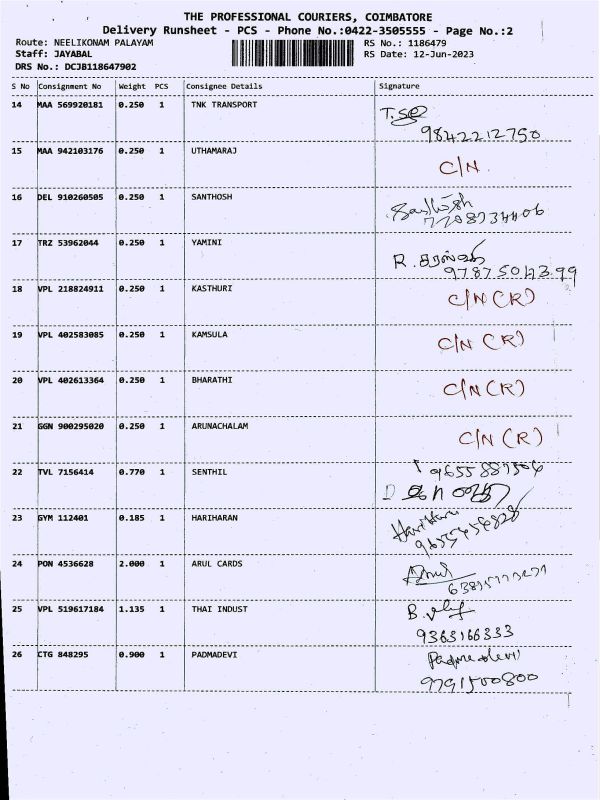 THE PROFESSIONAL COURIERS, COIMBATORE
Delivery Runsheet - PCS - Phone No.:0422-3505555 - Page No.:2
Route: NEELIKONAM PALAYAM RS No.: 1186479
Staff: JAYABAL RS Date: 12-Jun-2023
DRS No.: DCJB118647902
S No Consignment No Weight PCS Consignee Details Signature
14 MAA 569920181 0.250 1 TNK TRANSPORT
9842212750
15 MAA 942103176 0.250 1 UTHAMARAJ C/N
16 DEL 910260505 0.250 1 SANTHOSH Santhosh
17 TRZ 53962044 0.250 1 YAMINI R.
18 VPL 218824911 0.250 1 KASTHURI C/N (R)
19 VPL 402583085 0.250 1 KAMSULA C/N (R)
20 VPL 402613364 0.250 1 BHARATHI C/N (R)
21 GGN 900295020 0.250 1 ARUNACHALAM C/N (R)
22 TVL 7156414 0.770 1 SENTHIL
23 GYM 112401 0.185 1 HARIHARAN Hariharan
24 PON 4536628 2.000 1 ARUL CARDS Arul
25 VPL 519617184 1.135 1 THAI INDUST B.
9363166333
26 CTG 848295 0.900 1 PADMADEVI Padmadevi
9791500800